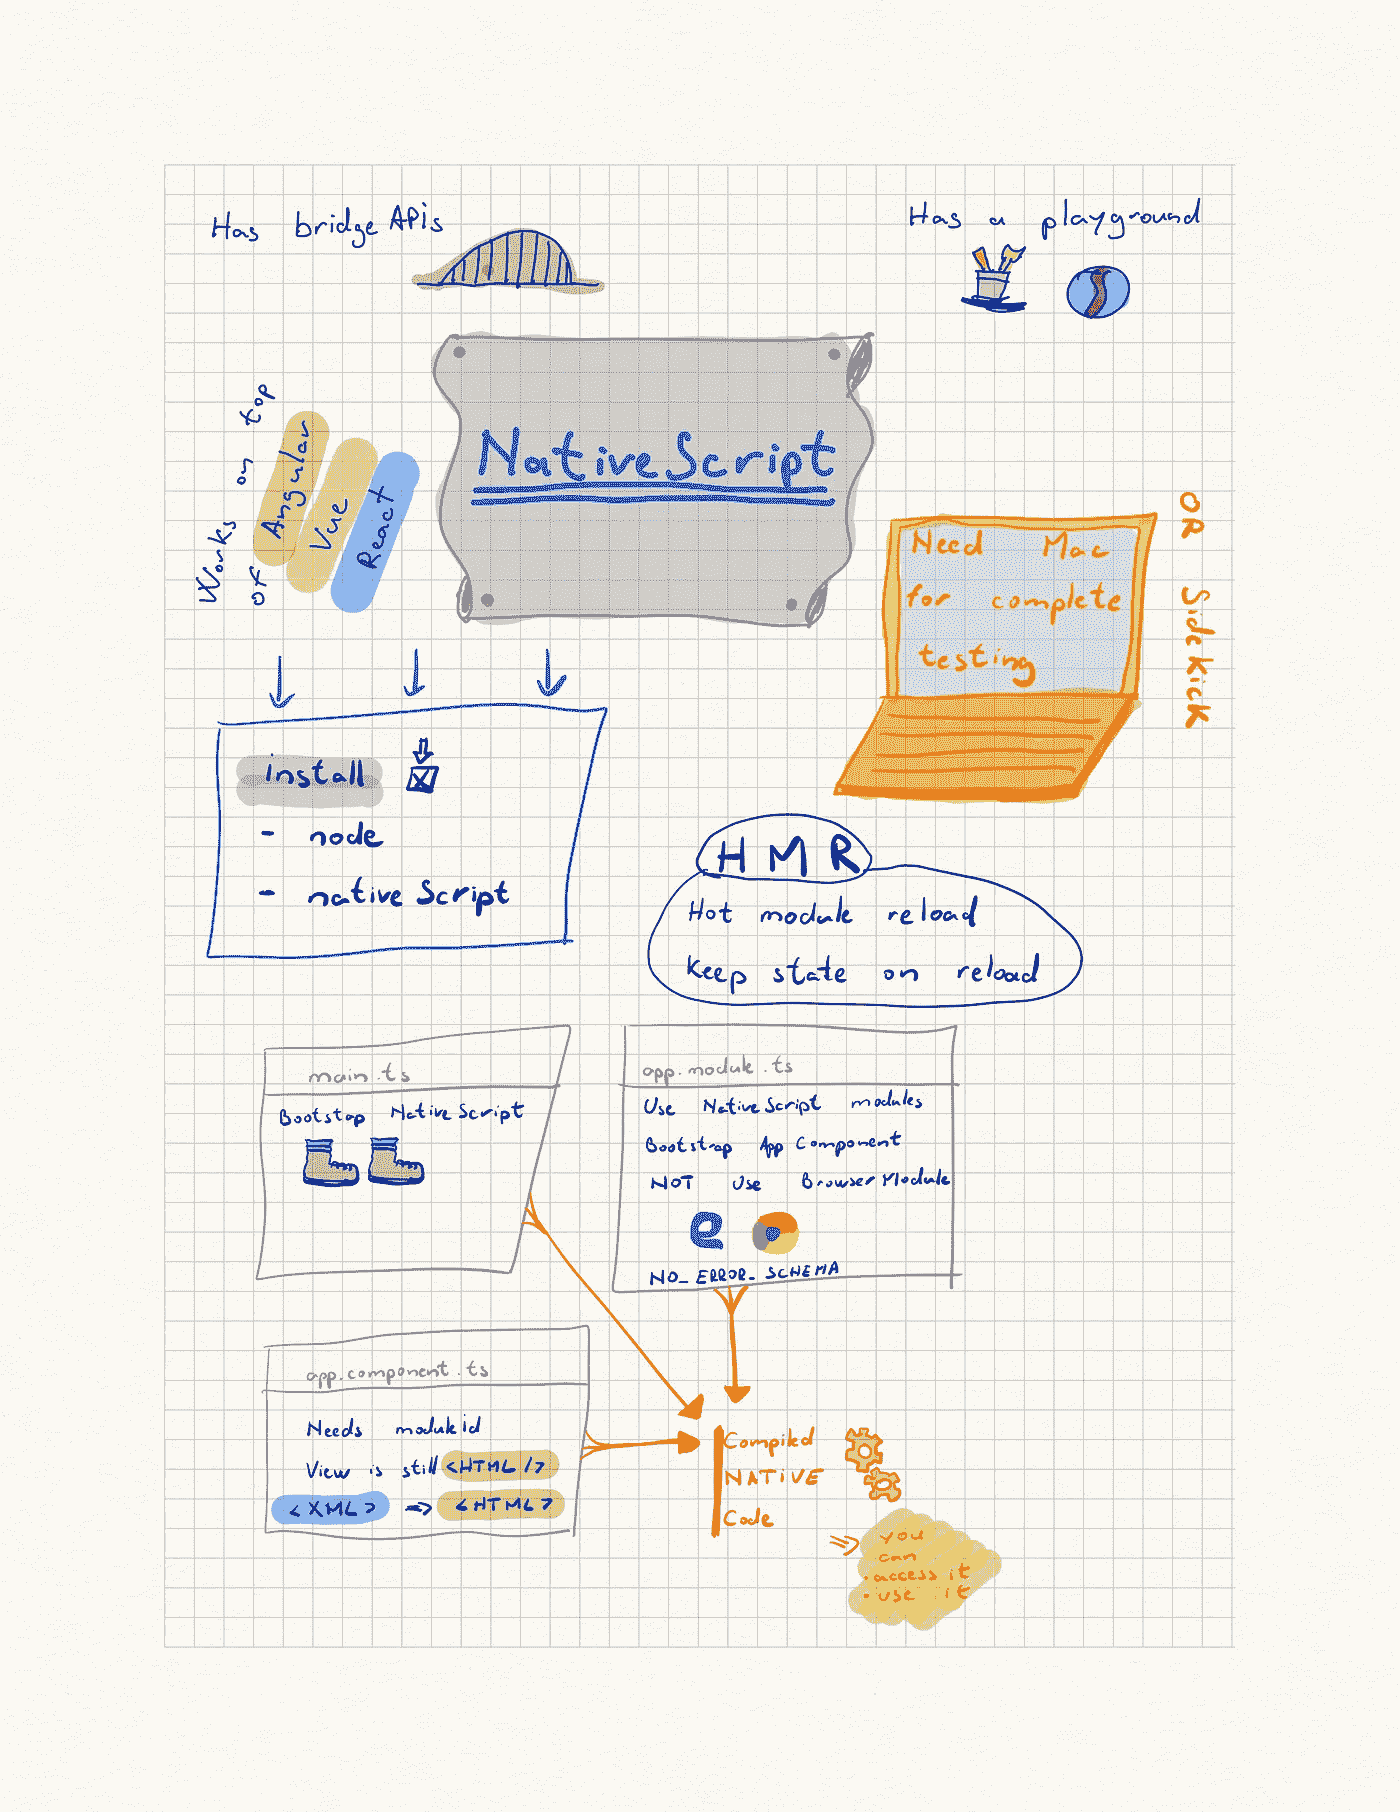 Has bridge APIs
Has a playground
Works on top
of
Angular
Vue
React
NativeScript
Need Mac
for complete
testing
OR SideKick
install
- node
- native Script
HMR
Hot module reload
Keep state on reload
main.ts
Bootstap NativeScript
app.module.ts
Use NativeScript modules
Bootstrap App Component
NOT Use BrowserModule
NO_ERROR_SCHEMA
app.component.ts
Needs module id
View is still <HTML />
<XML> => <HTML>
Compiled
NATIVE
Code
=> you
can
• access it
• use it